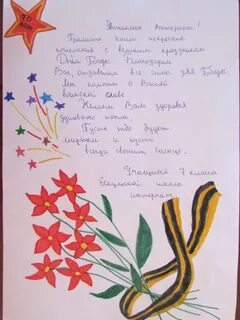 70
лет
Уважаемые Ветераны!
Примите наши искренние
пожелания с великим праздником
Днём Победы. Благодарим
Вас, отдавших все силы для Победы.
Мы помним о Вашей
воинской славе
Желаем Вам здоровья
душевного тепла,
Пусть небо будет
мирным и пусть
всегда светит солнце.
Учащиеся 7 класса
школа
интернат